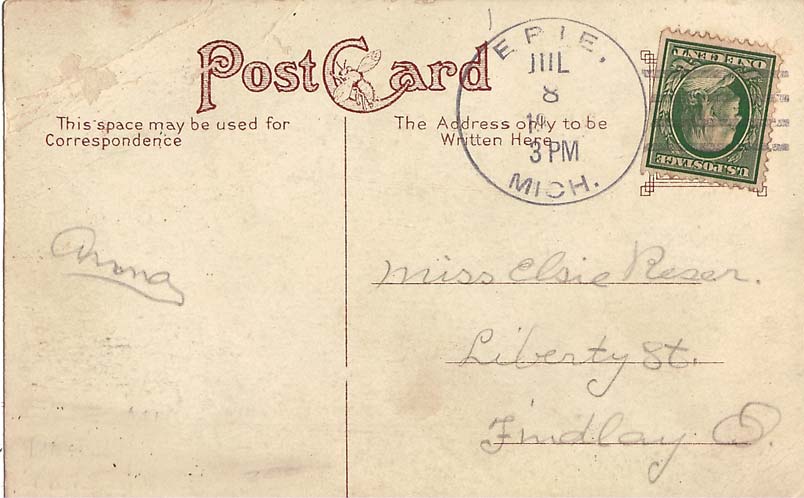 Post Card
This space may be used for
Correspondence
The Address only to be
Written Here
ERIE,
JUL
8
3 PM
MICH.
ONE CENT
U.S. POSTAGE
Anna
Miss Elsie Reser.
Liberty St.
Findlay O.